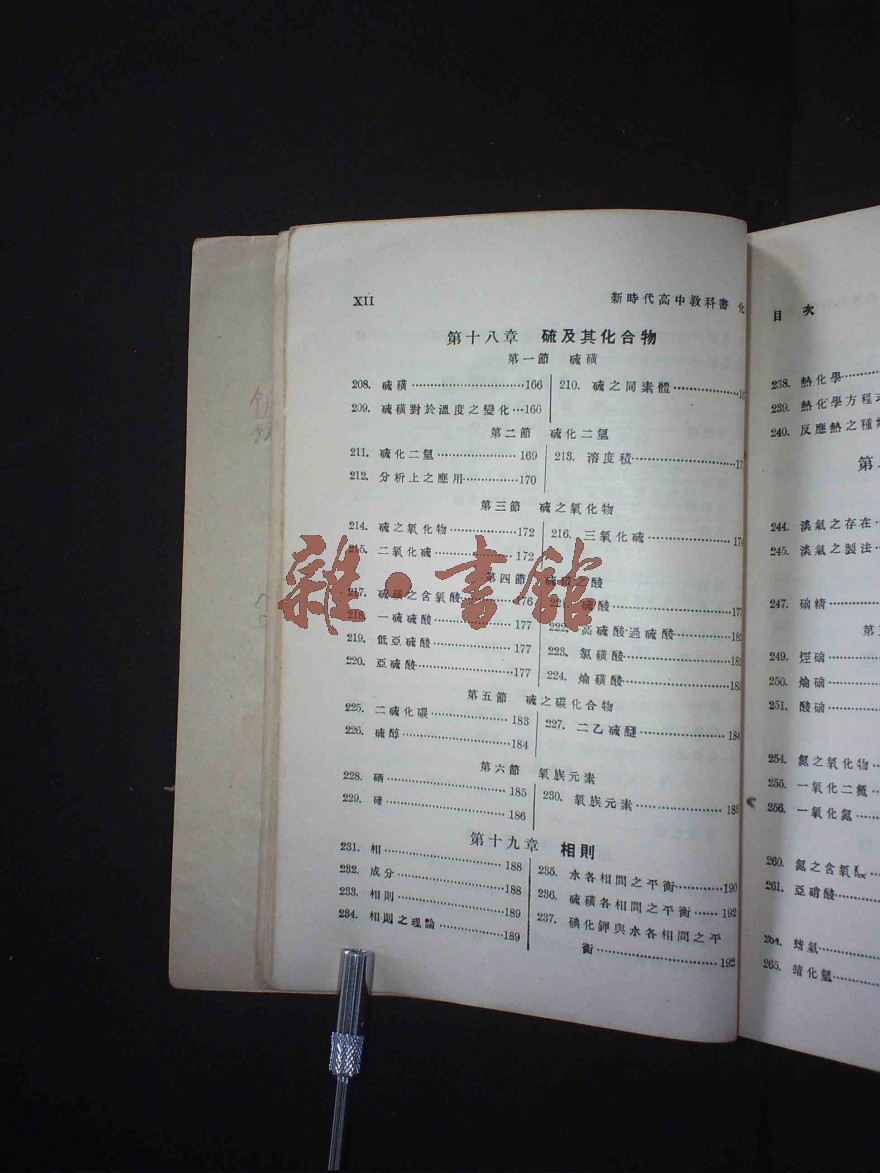 XII
新時代高中教科書 化
第十八章 硫及其化合物
第一節 硫磺
208. 硫磺…………………………166
209. 硫磺對於溫度之變化…166
210. 硫之同素體………………
第二節 硫化二氫
211. 硫化二氫…………………169
212. 分析上之應用……………170
213. 溶度積………………………17
第三節 硫之氧化物
214. 硫之氧化物………………172
215. 二氧化硫…………………172
216. 三氧化硫…………………17
第四節 硫磺之酸
217. 硫磺之含氧酸……………176
218. 一硫硫酸…………………177
219. 低亞硫酸…………………177
220. 亞硫酸……………………177
221. 硫酸………………………17
222. 高硫酸過硫酸……………18
223. 氯磺酸……………………18
224. 焴磺酸……………………18
第五節 硫之碳化合物
225. 二硫化碳…………………183
226. 硫醇………………………184
227. 二乙硫醚…………………184
第六節 氧族元素
228. 硒…………………………185
229. 碲…………………………186
230. 氧族元素…………………185
第十九章 相則
231. 相…………………………188
232. 成分………………………188
233. 相則………………………189
234. 相則之理論………………189
235. 水各相間之平衡…………190
236. 硫磺各相間之平衡……192
237. 碘化鉀與水各相間之平
衡……………………………192
目 次
238. 熱化學………
239. 熱化學方程
240. 反應熱之種
第
244. 淡氣之存在…
245. 淡氣之製法…
247. 硇精…………
第
249. 烴硇…………
250. 焴硇…………
251. 酸硇…………
254. 氮之氧化物…
255. 一氧化二氮…
256. 一氧化氮……
260. 氮之含氧
261. 亞硝酸………
264.
265. 化氫………
雜·書館